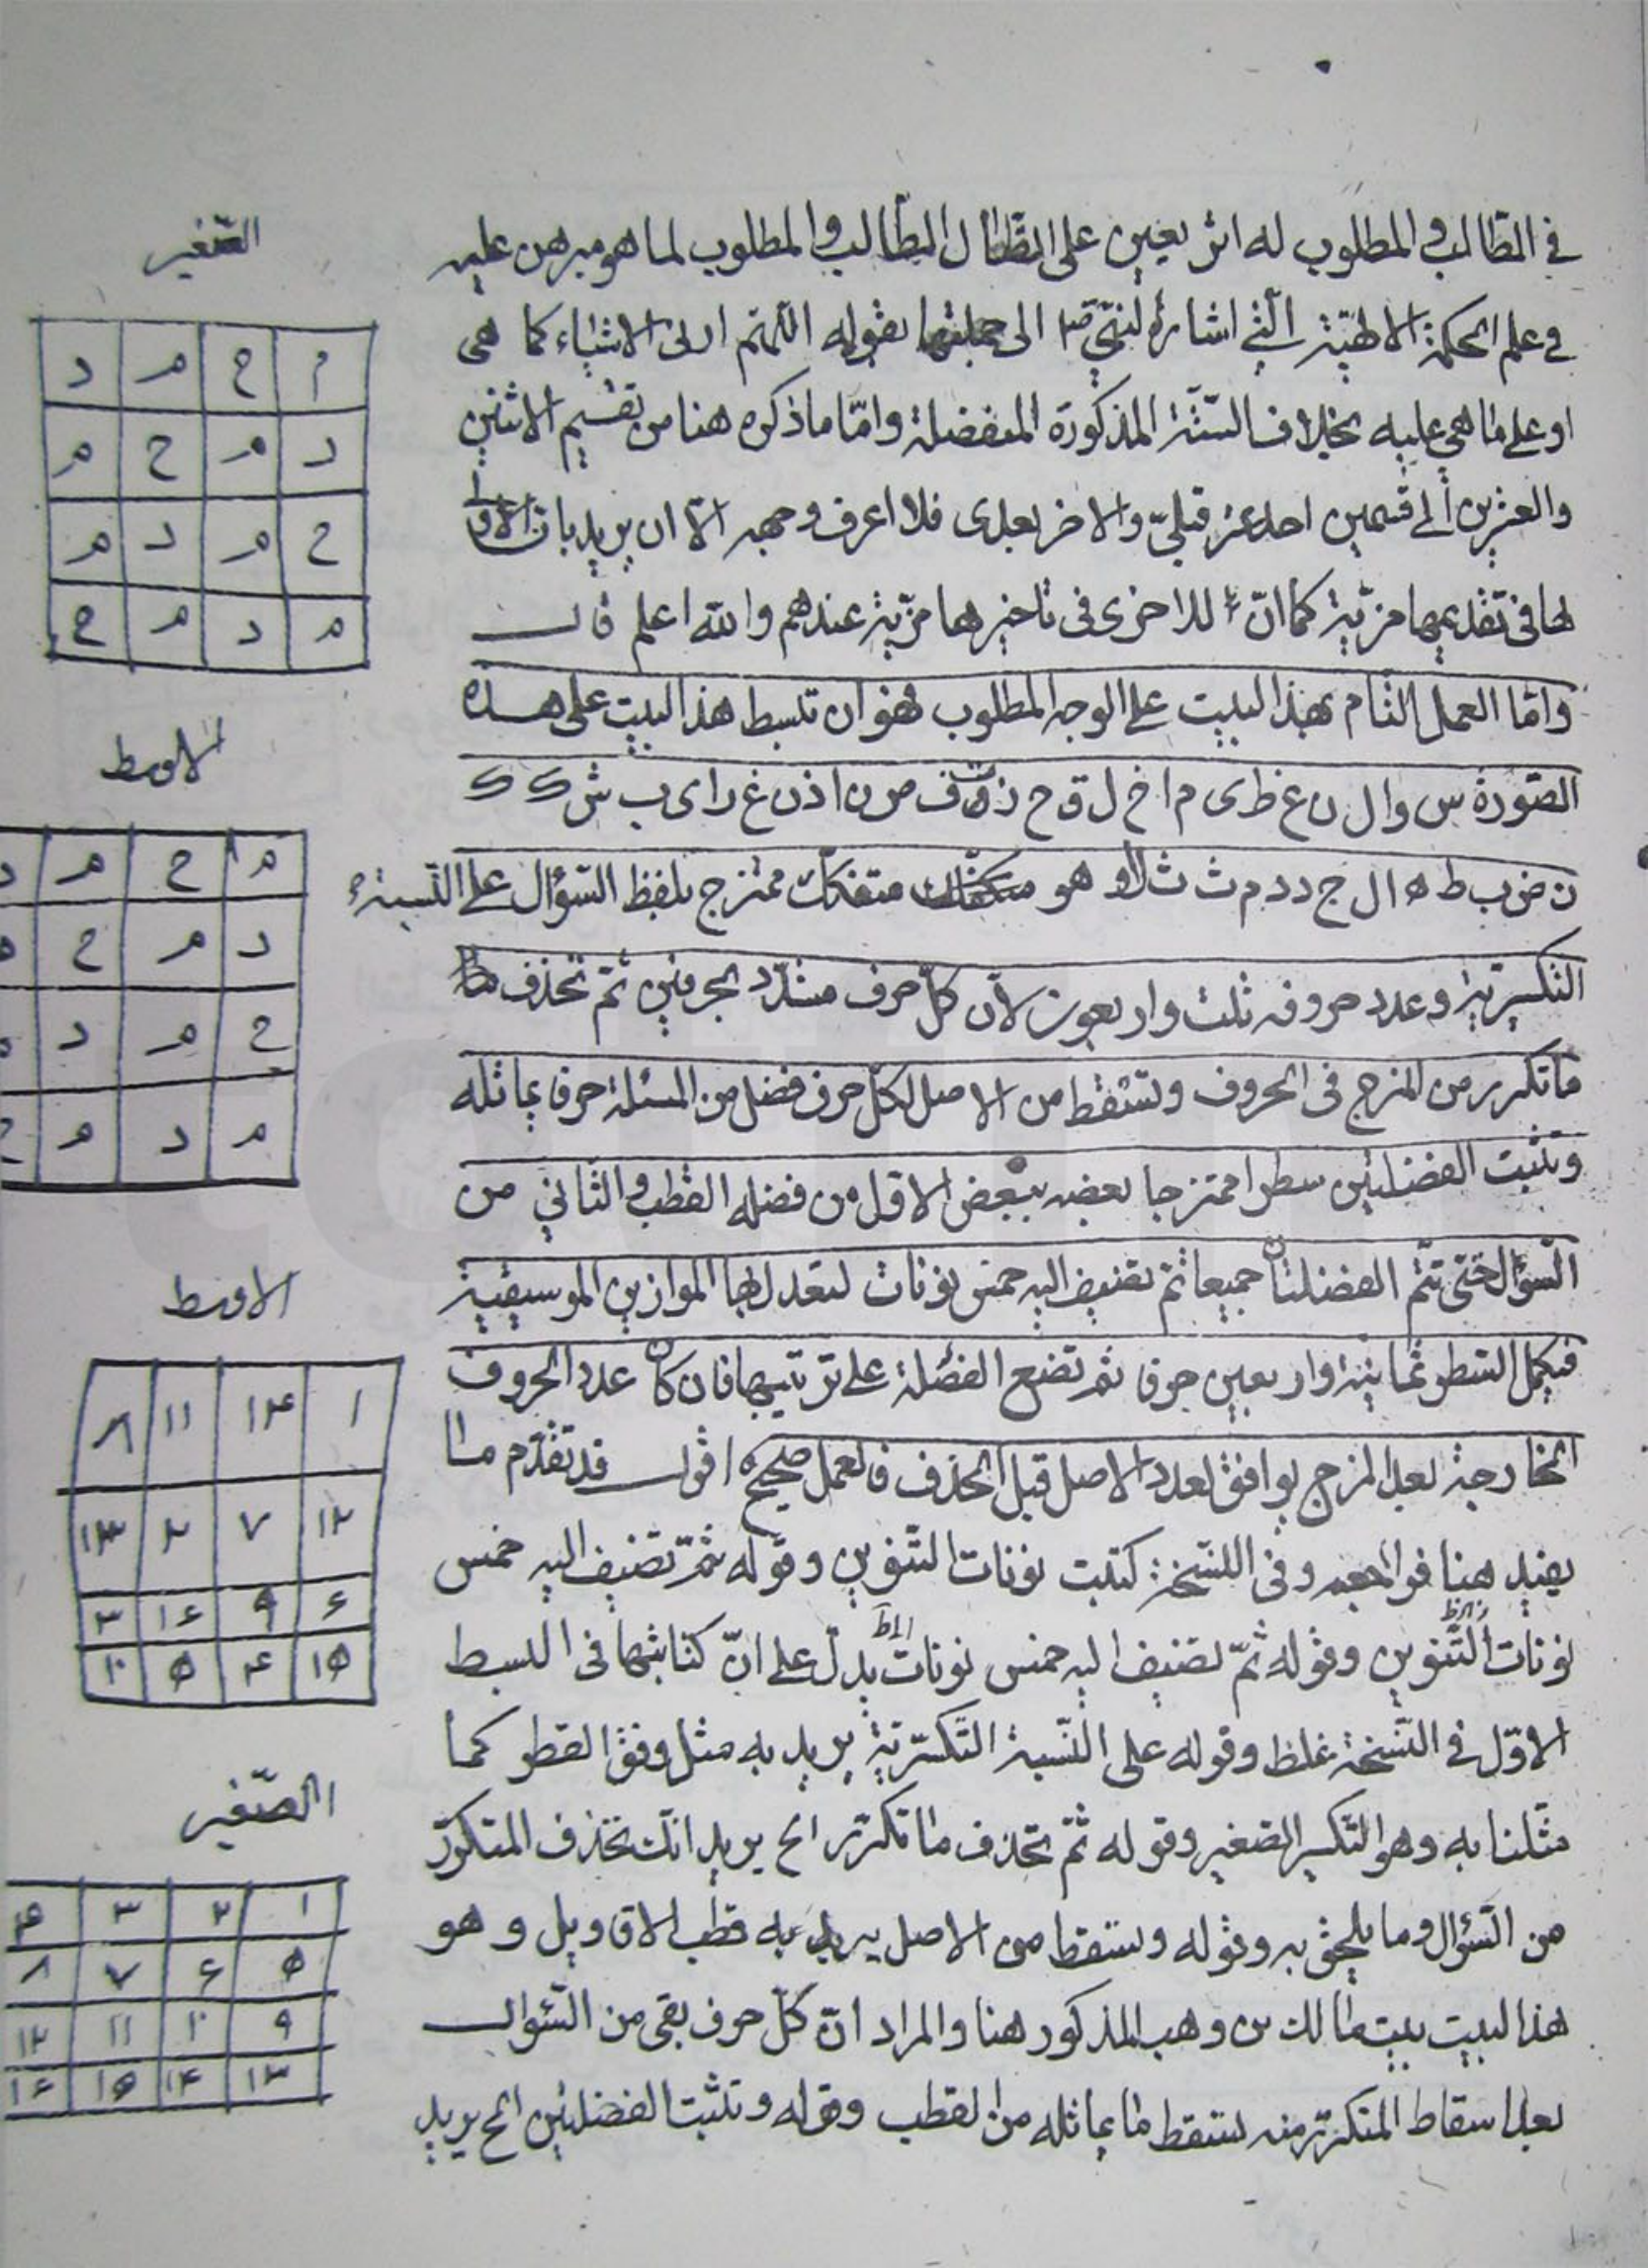 في الطالب والمطلوب له اثر يعين على الطالب والمطلوب لما هو مبرهن عليه
في علم الحكمة الالهية التي اشار النبي ص الى جملتها بقوله اللهم ارنى الاشياء كما هى
او على ما هي عليه بخلاف الستة المذكورة المنفصلة وامّا ما ذكره هنا من تقسيم الاثنين
والعشرين الى قسمين احد عشر قبليّ والاخر بعدى فلا اعرف وجهه الّا ان يريد بان الاول
لها في تقديمها مزيّة كما انّ للاخرى فى تاخيرها مزيّة عندهم والله اعلم قال
وامّا العمل التام بهذا البيت على الوجه المطلوب فهو ان تبسط هذا البيت على هذه
الصّورة س و ا ل ن ع ظ ى م ا خ ل ق ح ز ت ف ص ن ا ذ ن غ ر ا ى ب ش ك ك
ن ض ب ط ه ا ل ج د د م ث ث لا و هو متفكك ممتزج بلفظ السّؤال على النسبة
التكسيريّة وعدد حروفه ثلث واربعون لانّ كلّ حرف مشدّد بحرفين ثم تحذف
ما تكرر من المزج فى الحروف وتسقط من الاصل لكلّ حرف فضل من المسئلة حرفا يماثله
وتثبت الفضلتين سطرا ممتزجا بعضه ببعض الاوّل من فضله القطب والثاني من
السّؤال حتى تتمّ الفضلتان جميعا ثم تضيف اليه خمس نونات لتعدل بها الموازين الموسيقية
فيكمل السّطر ثمانية واربعين حرفا ثم تضع الفضلة على ترتيبها فان كان عدد الحروف
الخارجة بعد المزج يوافق لعدد الاصل قبل الحذف فالعمل صحيح اقول قد تقدّم ما
يفيد هنا فراجعه وفى النّسخة كتبت نونات التنوين وقوله ثمّ تضيف اليه خمس
نونات التّنوين وقوله ثمّ تضيف اليه خمس نونات يدلّ على انّ كتابتها فى البسط
الاوّل في النّسخة غلط وقوله على النّسبة التّكسيريّة يريد به مثل وفق القطر كما
مثّلنا به وهو التّكسير الصغير وقوله ثمّ تحذف ما تكرّر الخ يريد انّك تحذف المتكرّر
من السّؤال وما يلحق به وقوله وتسقط من الاصل يريد به قطب الاقاويل وهو
هذا البيت بيت مالك بن وهب المذكور هنا والمراد انّ كلّ حرف بقى من السّؤال
بعد اسقاط المتكرّر منه تسقط ما يماثله من القطب وقوله وتثبت الفضلتين الخ يريد
الصّغير
م ح م د
د م ح م
ح م د م
م د م ح
الاوسط
م ح م د
د م ح
ح م د
م د م ح
الاوسط
١ ١۴ ١١ ٨
١٢ ٧ ٢ ١٣
۶ ٩ ١۶ ٣
١٥ ۴ ٥ ١٠
الصّغير
١ ٢ ٣ ۴
٥ ۶ ٧ ٨
٩ ١٠ ١١ ١٢
١٣ ١۴ ١٥ ١۶